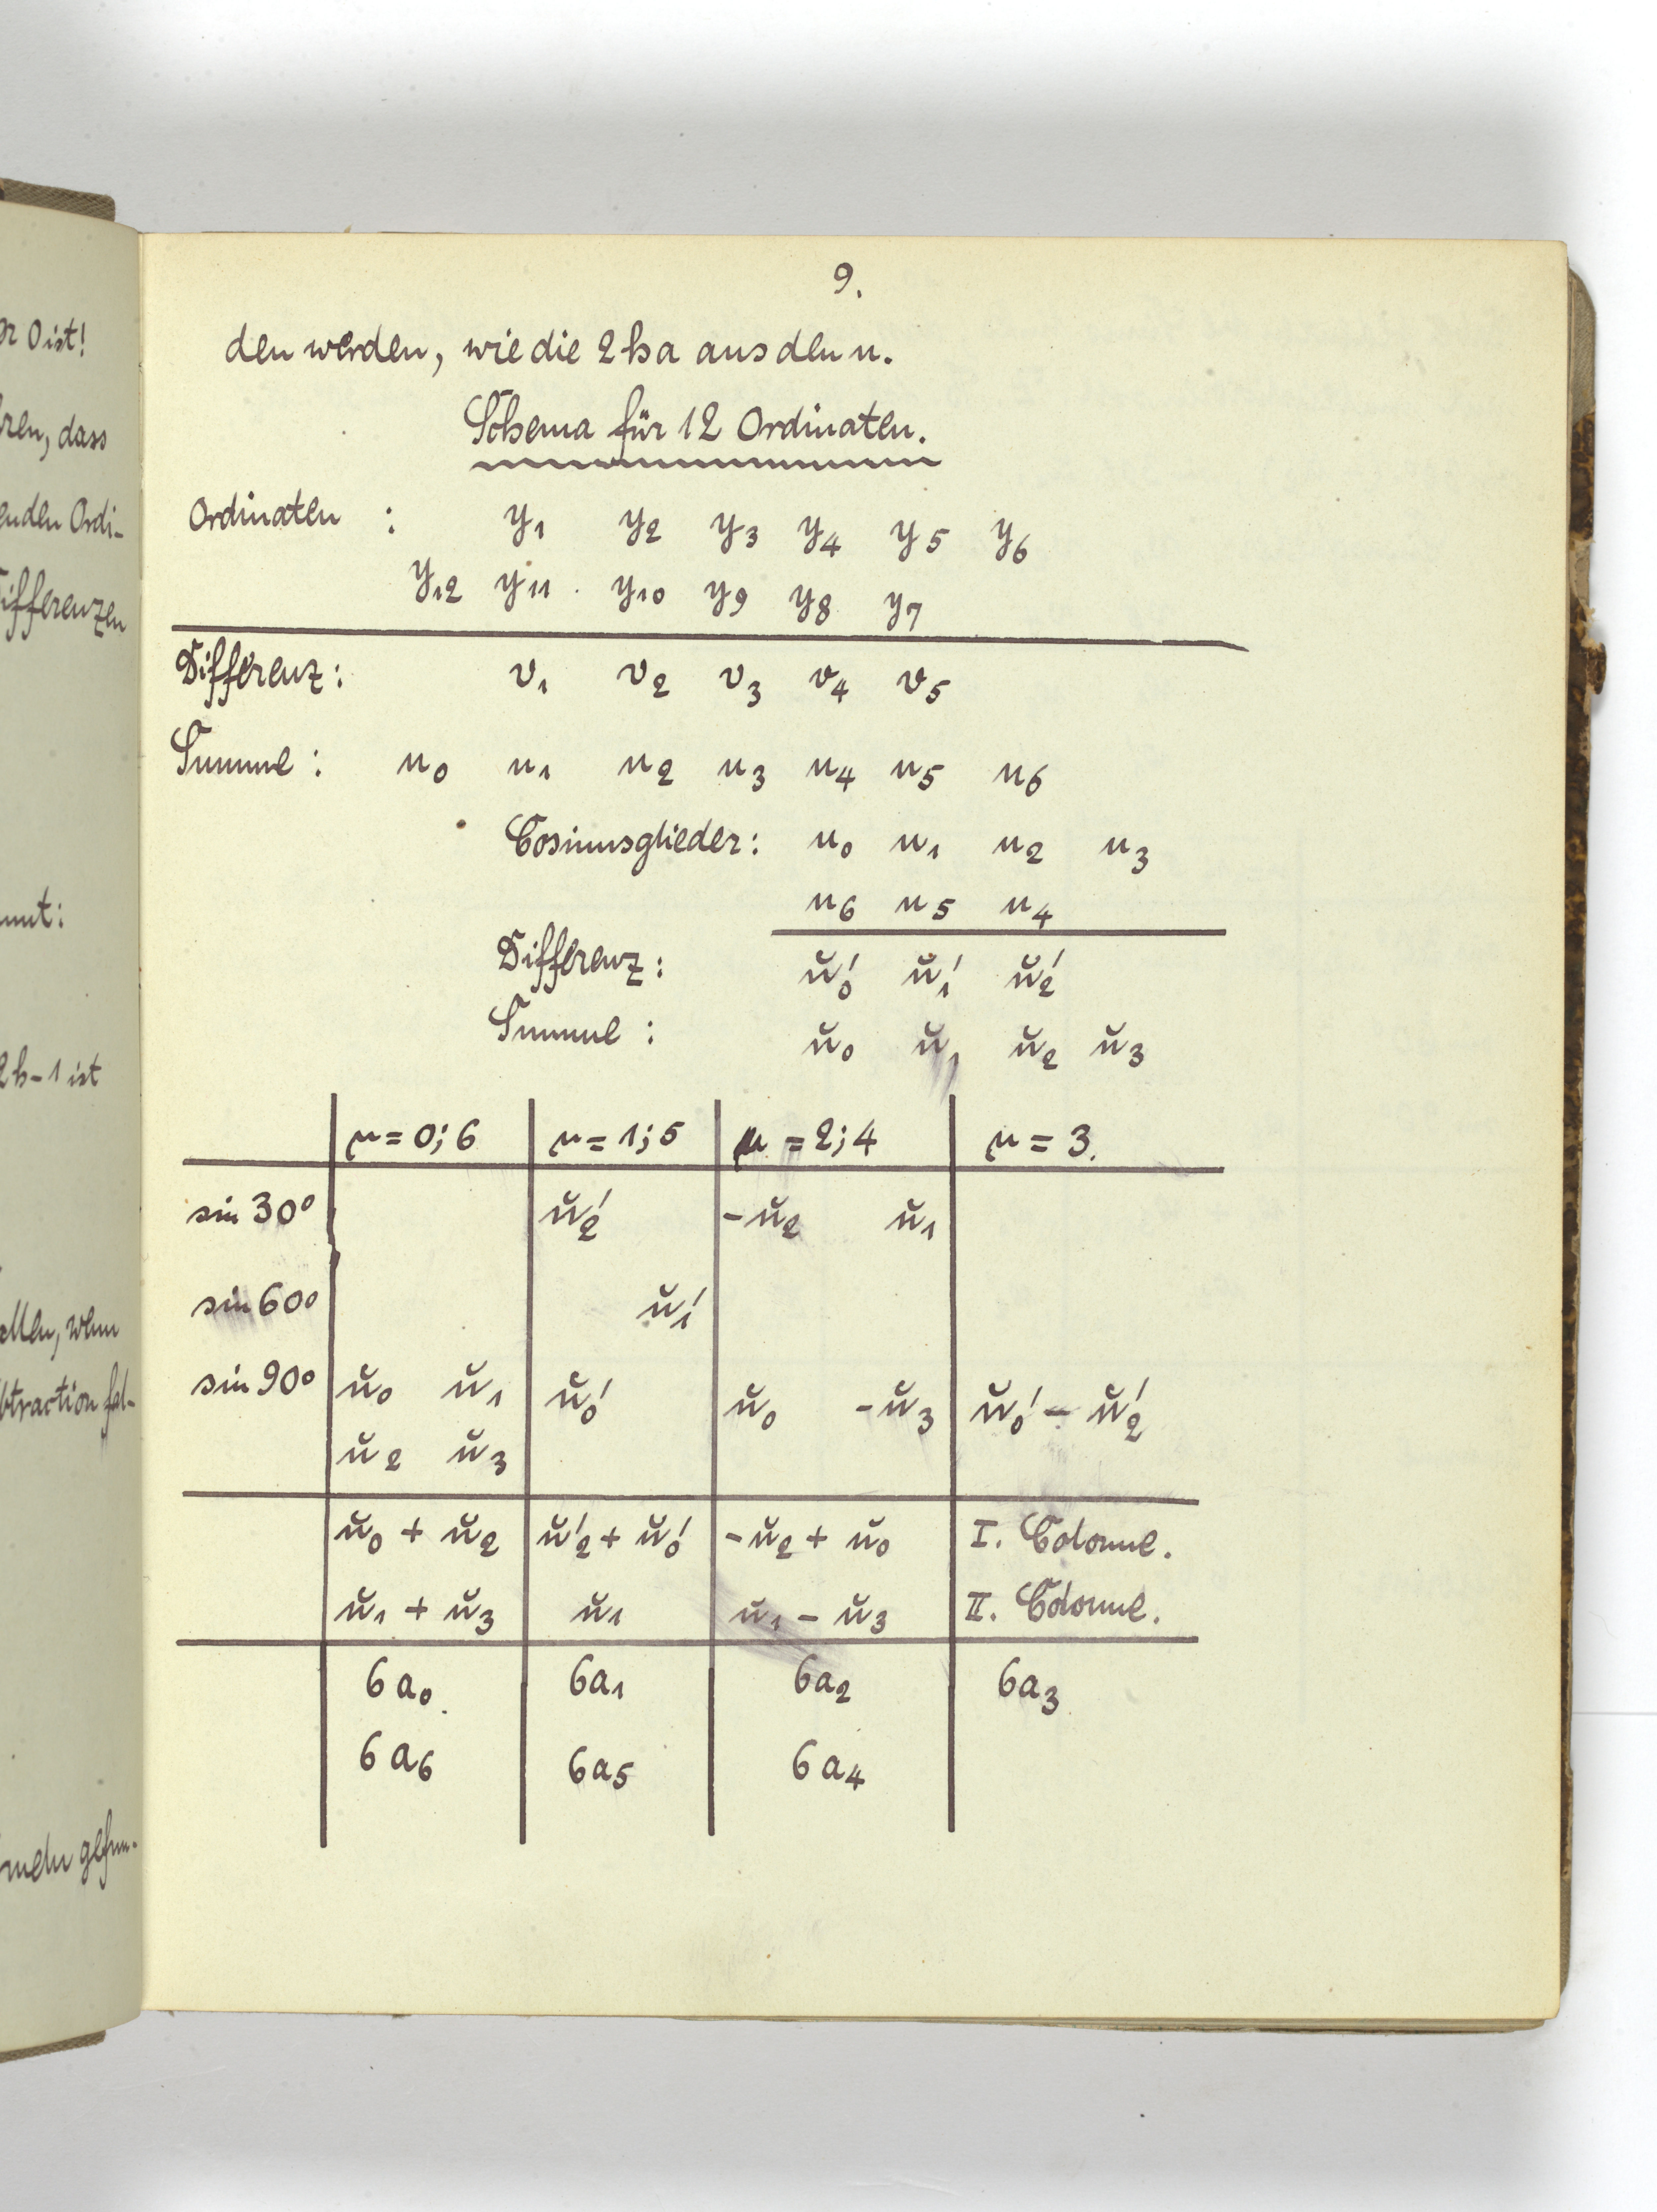 er 0 ist!
ren, dass
enden Ordi-
Differenzen
mmt:
2h-1 ist
allen, wenn
btraction fal-
meln gefun-
9.
den werden, wie die 2ha aus den u.
Schema für 12 Ordinaten.
Ordinaten : y₁ y₂ y₃ y₄ y₅ y₆
y₁₂ y₁₁ y₁₀ y₉ y₈ y₇
Differenz: v₁ v₂ v₃ v₄ v₅
Summe: u₀ u₁ u₂ u₃ u₄ u₅ u₆
Cosinusglieder: u₀ u₁ u₂ u₃
u₆ u₅ u₄
Differenz: ŭ₀′ ŭ₁′ ŭ₂′
Summe: ŭ₀ ŭ₁ ŭ₂ ŭ₃
μ=0;6 μ=1;5 μ=2;4 μ=3.
sin 30° ŭ₂′ -ŭ₂ ŭ₁
sin 60° ŭ₁′
sin 90° ŭ₀ ŭ₁ ŭ₀′ ŭ₀ -ŭ₃ ŭ₀′ - ŭ₂′
ŭ₂ ŭ₃
ŭ₀ + ŭ₂ ŭ₂′ + ŭ₀′ -ŭ₂ + ŭ₀ I. Colonne.
ŭ₁ + ŭ₃ ŭ₁ ŭ₁ - ŭ₃ II. Colonne.
6a₀. 6a₁ 6a₂ 6a₃
6a₆ 6a₅ 6a₄